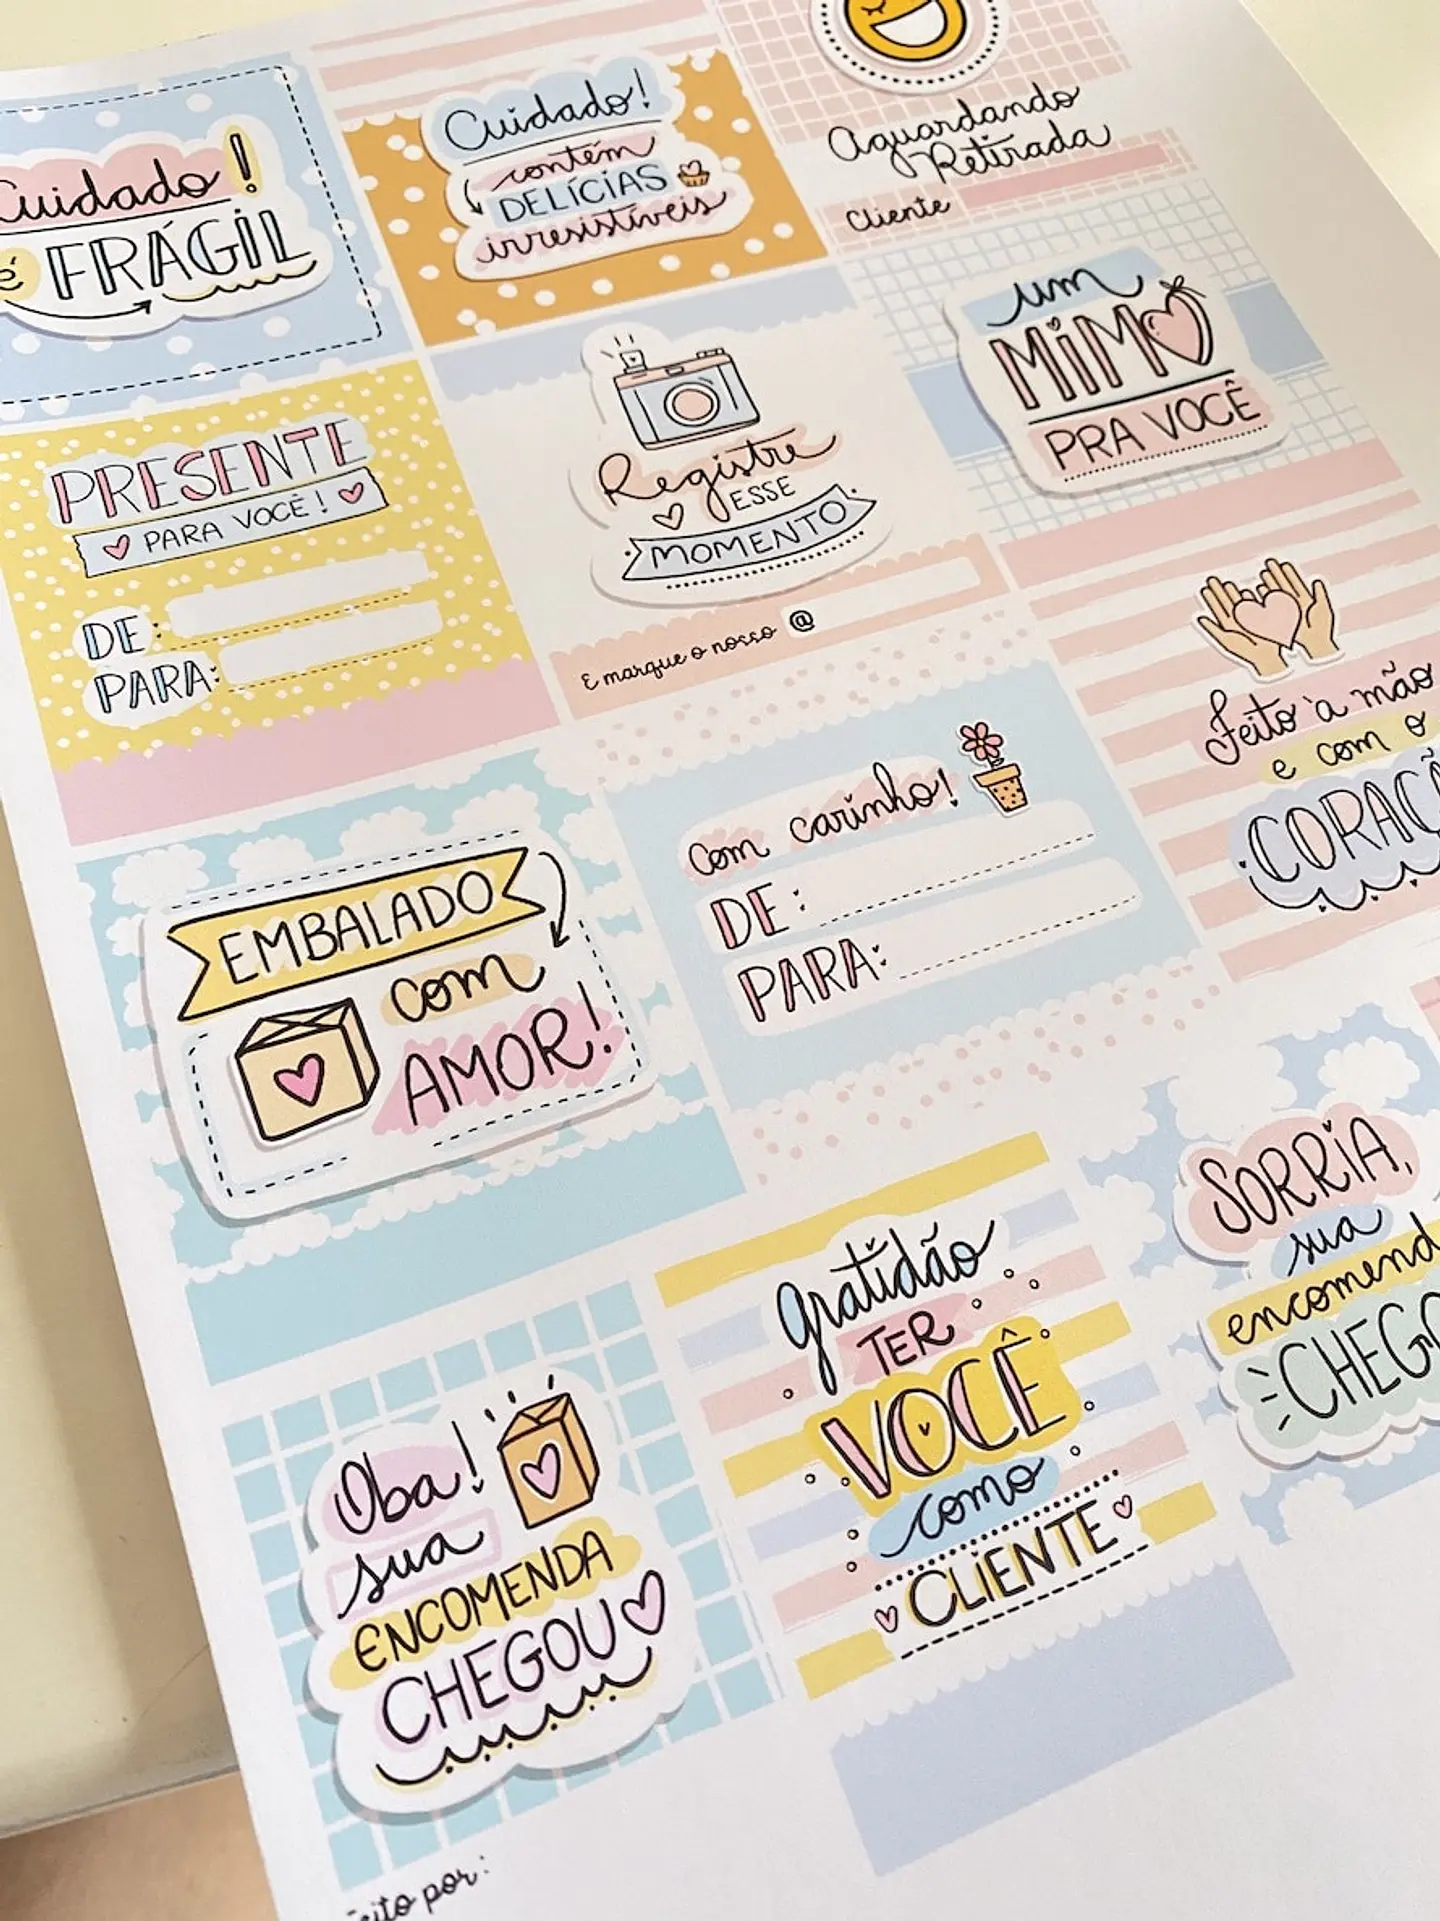 Cuidado!
é FRÁGIL
Cuidado!
contém
DELÍCIAS
irresistíveis
Aguardando
Retirada
Cliente
PRESENTE
PARA VOCÊ!
DE:
PARA:
Registre
ESSE
MOMENTO
E marque o nosso @
um
MIMO
PRA VOCÊ
EMBALADO
com
AMOR!
com carinho!
DE:
PARA:
Feito à mão
e com o
CORAÇÃ
Oba!
sua
ENCOMENDA
CHEGOU
gratidão
TER
VOCÊ
como
CLIENTE
SORRiA,
sua
encomend
CHEGO
eito por: